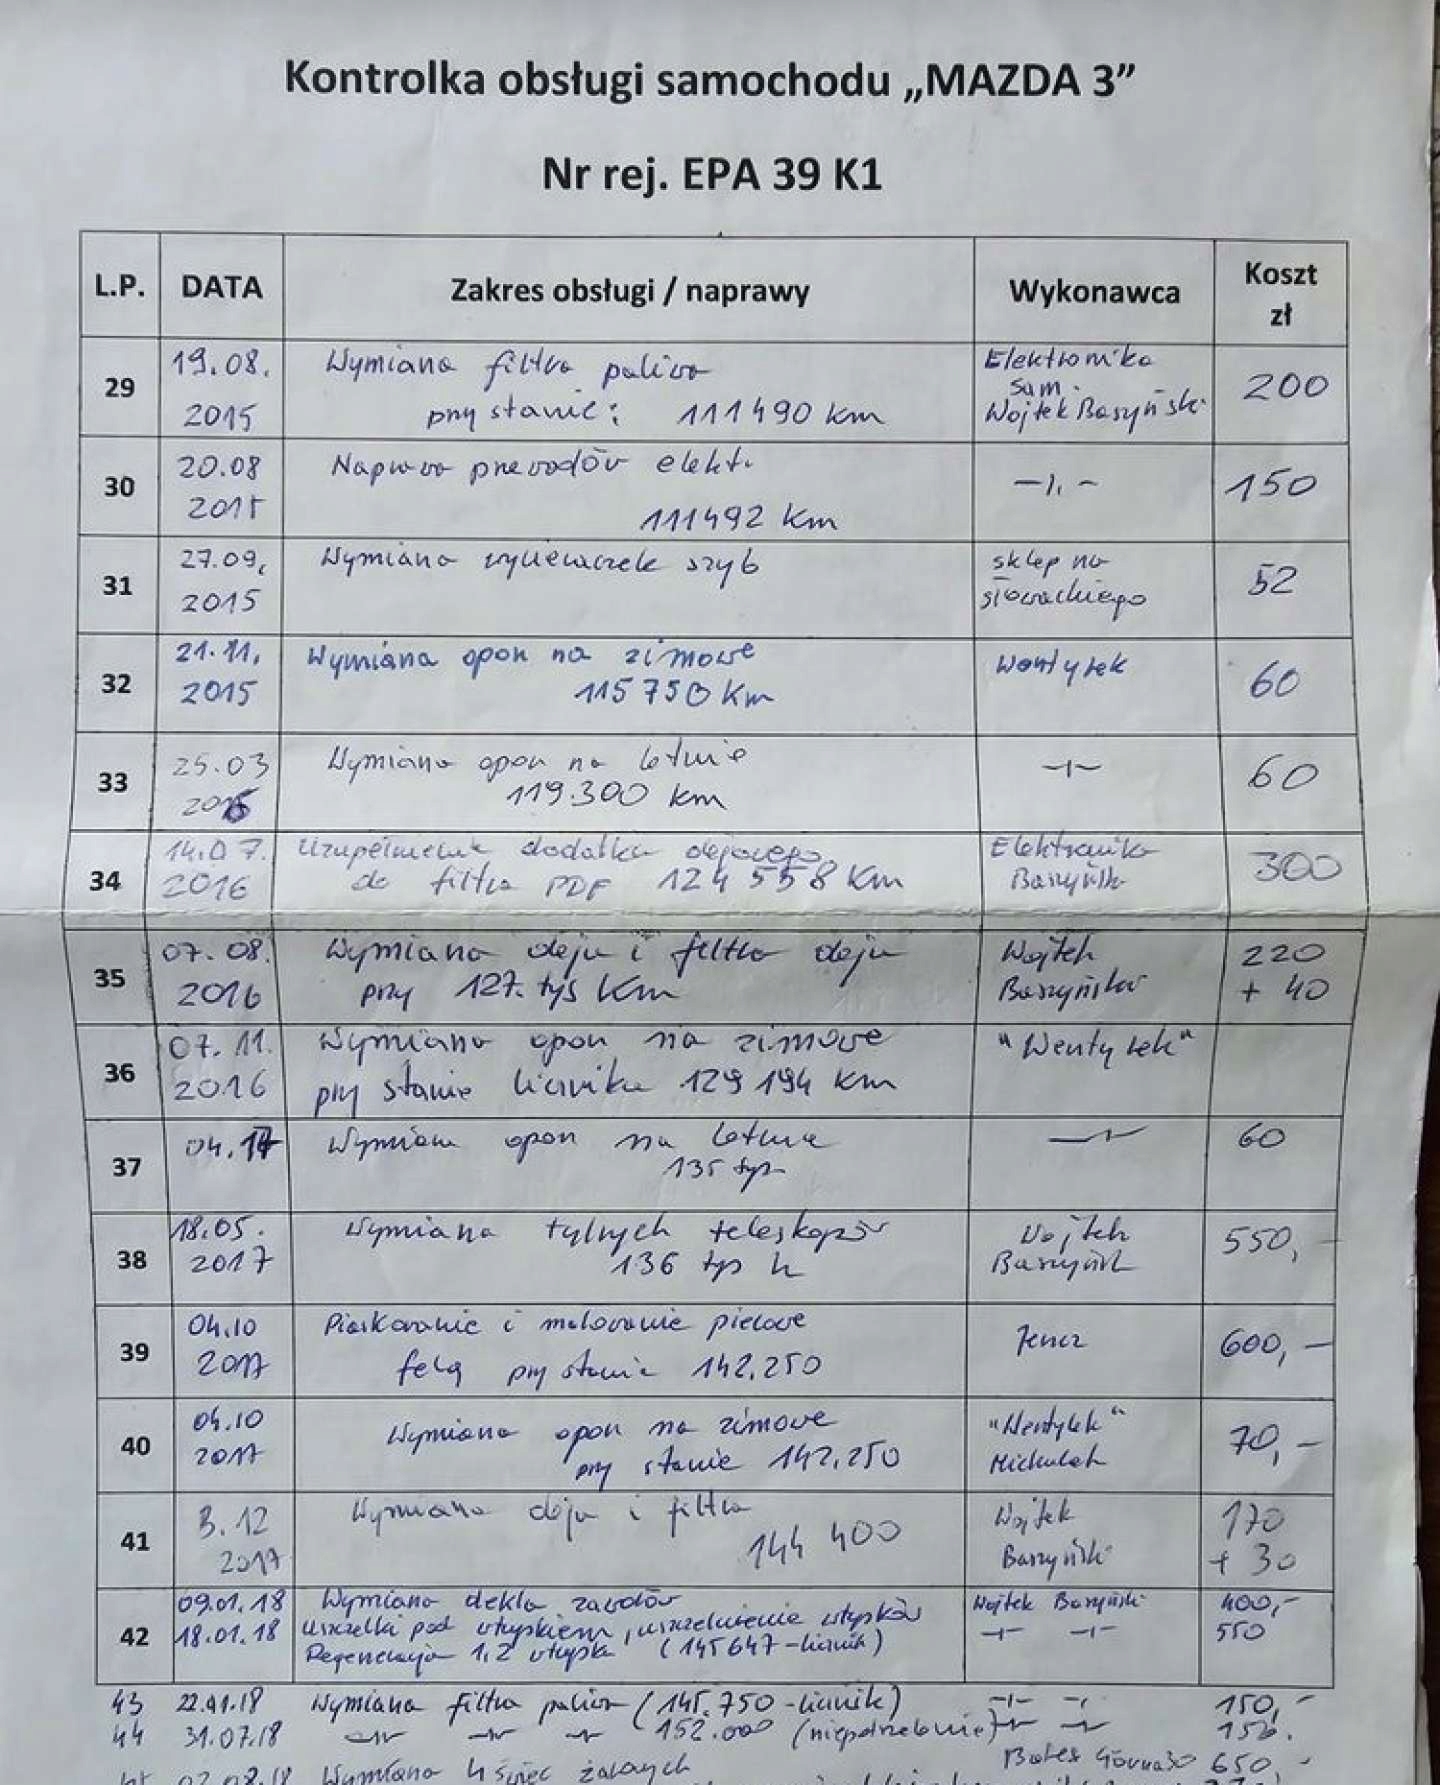 Kontrolka obsługi samochodu „MAZDA 3”
Nr rej. EPA 39 K1
L.P. DATA Zakres obsługi / naprawy Wykonawca Koszt zł
29 19.08. 2015 Wymiana filtra paliwa przy stanie: 111490 km Elektronika sam. Wojtek Baszyński 200
30 20.08 2015 Naprawa przewodów elekt. 111492 km —〃— 150
31 27.09. 2015 Wymiana wycieraczek szyb sklep na Słowackiego 52
32 21.11. 2015 Wymiana opon na zimowe 115750 km Wentylek 60
33 25.03 2016 Wymiana opon na letnie 119.300 km —〃— 60
34 14.07. 2016 Uzupełnienie dodatku olejowego do filtra PDF 124 558 km Elektronika Baszyński 300
35 07.08. 2016 Wymiana oleju i filtra oleju przy 127. tyś km Wojtek Baszyński 220 + 40
36 07.11. 2016 Wymiana opon na zimowe przy stanie licznika 129 194 km "Wentylek"
37 04.17 Wymiana opon na letnie 135 tyś —〃— 60
38 18.05. 2017 Wymiana tylnych teleskopów 136 tyś k Wojtek Baszyński 550,-
39 04.10 2017 Piaskowanie i malowanie piecowe felg przy stanie 142.250 Jencz 600,-
40 04.10 2017 Wymiana opon na zimowe przy stanie 142.250 "Wentylek" 70,-
41 3.12 2017 Wymiana oleju i filtra 144 400 Wojtek Baszyński 170 + 30
42 09.01.18 Wymiana dekla zaworów Wojtek Baszyński 400,-
18.01.18 uszczelki pod wtryskiem, uszczelnienie wtrysków —〃— —〃— 550
Regeneracja 1,2 wtryska (145647-licznik)
43 22.01.18 Wymiana filtra paliwa (145.750-licznik) —〃— —〃— 150,-
44 31.07.18 —〃— —〃— —〃— 152.000 (niepotrzebnie) —〃— —〃— 150.
Wymiana 4 świec żarowych 650,-